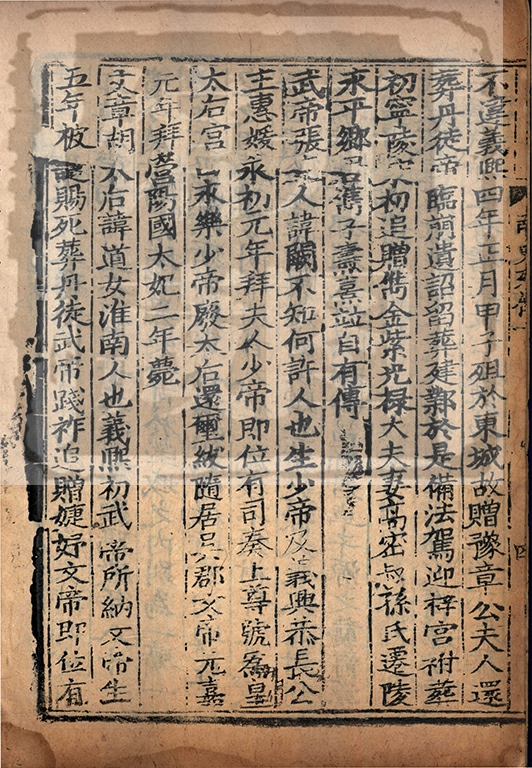 不違義熙四年正月甲子殂於東城故贈豫章公夫人還
葬丹徒帝臨崩遺詔留葬建鄴於是備法駕迎梓宮祔葬
初寧陵 初追贈雋金紫光祿大夫妻高密叔孫氏遷陵
永平鄉君雋子燾熹並自有傳
武帝張夫人諱闕不知何許人也生少帝及義興恭長公
主惠媛永初元年拜夫人少帝即位有司奏上尊號為皇
太后宮曰永樂少帝廢太后還璽紱隨居吳郡文帝元嘉
元年拜營陽國太妃二年薨
文章胡太后諱道女淮南人也義熙初武帝所納文帝生
五年被譴賜死葬丹徒武帝踐祚追贈婕妤文帝即位有